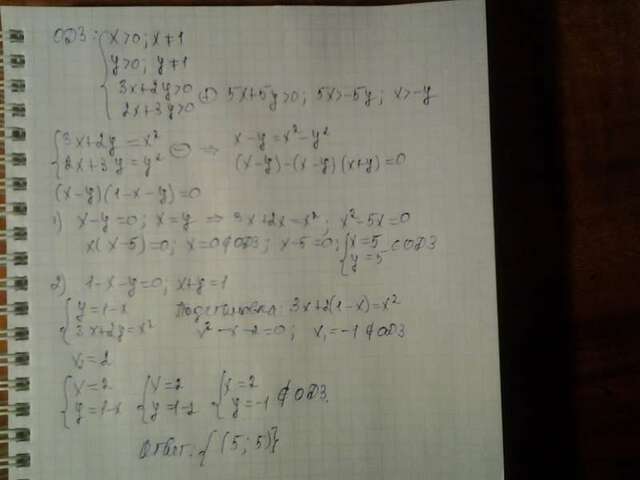 ОДЗ: { x>0; x≠1
y>0; y≠1
3x+2y>0
2x+3y>0 ⊕ 5x+5y>0; 5x>-5y; x>-y
{ 3x+2y=x²
2x+3y=y² ⊖ ⇒ x-y=x²-y²
(x-y)-(x-y)(x+y)=0
(x-y)(1-x-y)=0
1) x-y=0; x=y ⇒ 3x+2x=x²; x²-5x=0
x(x-5)=0; x=0∉ОДЗ; x-5=0; { x=5 y=5 ⊂ОДЗ
2) 1-x-y=0; x+y=1
{ y=1-x
3x+2y=x² Подстановка: 3x+2(1-x)=x²
x²-x-2=0; x₁=-1∉ОДЗ
x₂=2
{ x=2 y=1-x { x=2 y=1-2 { x=2 y=-1 ∉ОДЗ.
Ответ: {(5;5)}